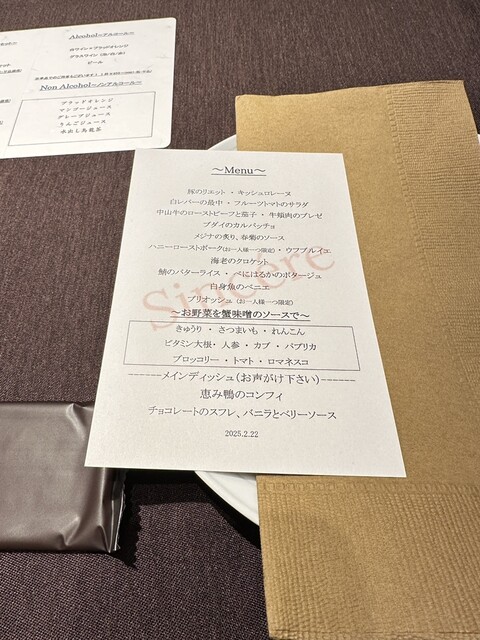 Alcohol～アルコール～
白ワイン+ブラッドオレンジ
グラスワイン（泡/白/赤）
ビール
Non Alcohol～ノンアルコール～
ブラッドオレンジ
マンゴージュース
グレープジュース
りんごジュース
水出し烏龍茶
～Menu～
豚のリエット ・ キッシュロレーヌ
白レバーの最中 ・ フルーツトマトのサラダ
中山牛のローストビーフと茄子 ・ 牛頬肉のブレゼ
ブダイのカルパッチョ
メジナの炙り、春菊のソース
ハニーローストポーク(お一人様一つ限定) ・ ウフブルイエ
海老のクロケット
鮹のバターライス ・ べにはるかのポタージュ
白身魚のベニエ
ブリオッシュ (お一人様一つ限定)
～お野菜を蟹味噌のソースで～
きゅうり ・ さつまいも ・ れんこん
ビタミン大根・ 人参 ・ カブ ・ パプリカ
ブロッコリー ・ トマト ・ ロマネスコ
------メインディッシュ(お声がけ下さい)------
恵み鴨のコンフィ
チョコレートのスフレ、バニラとベリーソース
2025.2.22
Sincere